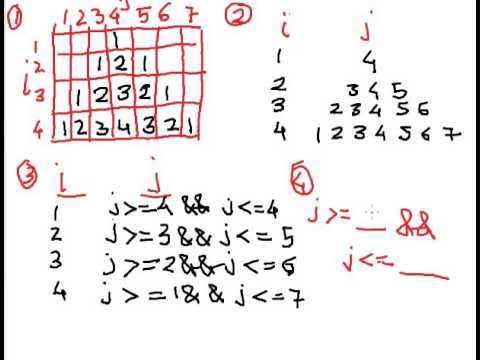 ① j ② i j
1 2 3 4 5 6 7
1 1
i 2 1 2 1
3 1 2 3 2 1
4 1 2 3 4 3 2 1
1 4
2 3 4 5
3 2 3 4 5 6
4 1 2 3 4 5 6 7
③ i j
1 j>=4 && j<=4
2 j>=3 && j<=5
3 j>=2 && j<=6
4 j>=1 && j<=7
④
j>= __ &&
j<= __